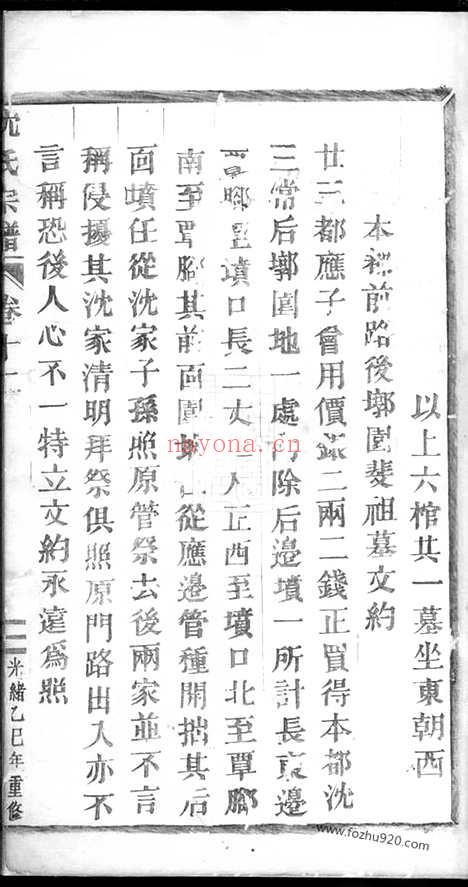 以上六棺共一墓坐東朝西
本祠前路後墎園斐祖墓文約
廿三都應子會用價銀二兩二錢正買得本都沈
三常后墎園地一處內除后邊墳一所計長東邊
墳口長二丈正西至墳口北至覃腳
南至覃腳其前面園從應邊管種開拙其后
面墳任從沈家子孫照原管祭去後兩家並不言
稱侵擾其沈家清明拜祭俱照原門路出入亦不
言稱恐後人心不一特立文約永遠為照
沈氏宗譜 卷十一 光緒乙巳年重修
nayona.cn
www.fozhu920.com